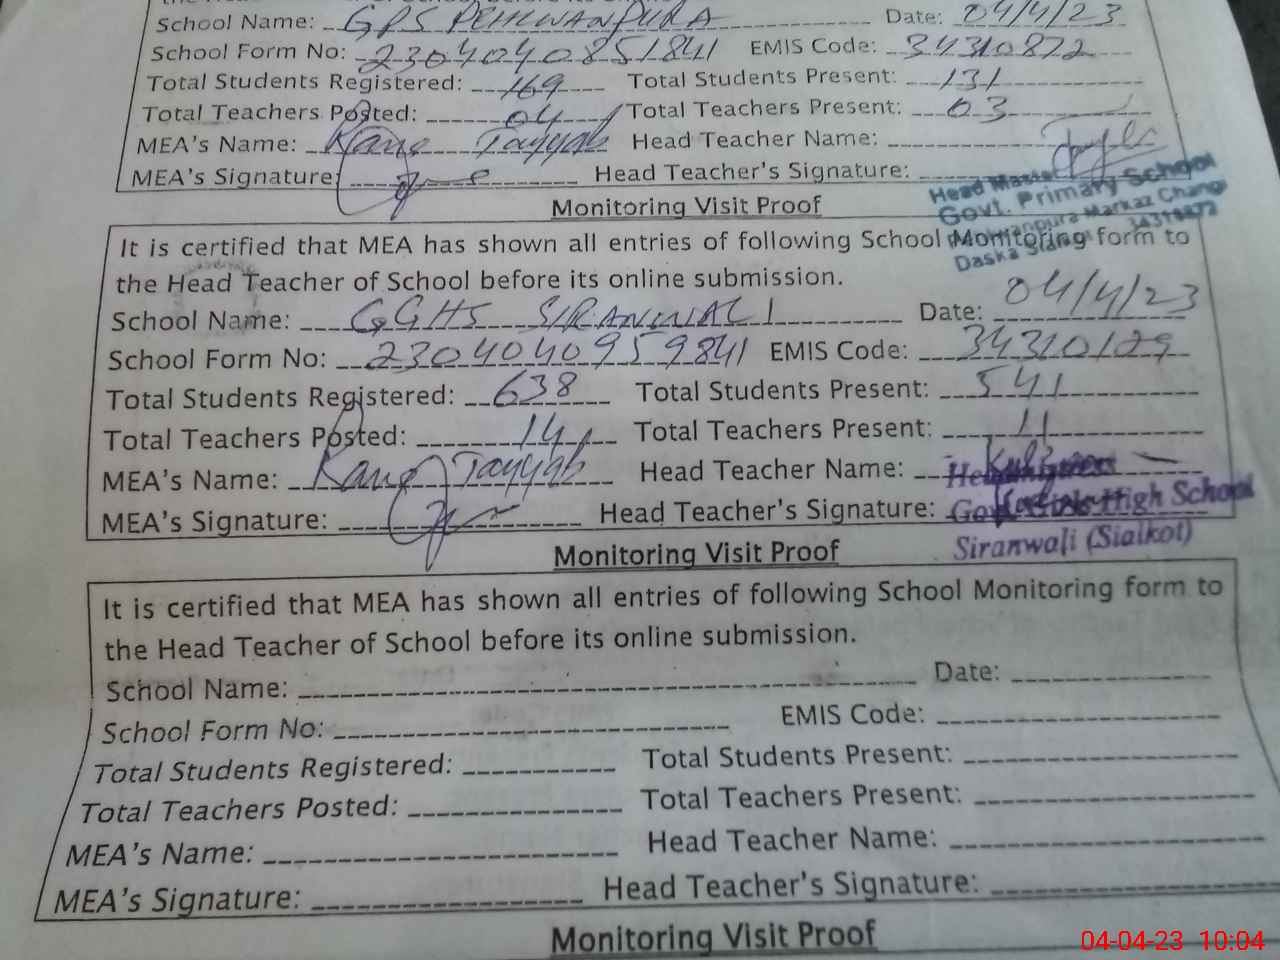 School Name: GPS PEHLWANPURA Date: 04/4/23
School Form No: 2304040851841 EMIS Code: 34310872
Total Students Registered: 169 Total Students Present: 131
Total Teachers Posted: 04 Total Teachers Present: 03
MEA's Name: Rana Tayyab Head Teacher Name:
MEA's Signature: Head Teacher's Signature:
Head Master
Govt. Primary School
Markaz Changi
Daska 34310872
Monitoring Visit Proof
It is certified that MEA has shown all entries of following School Monitoring form to
the Head Teacher of School before its online submission.
School Name: GGHS SIRANWALI Date: 04/4/23
School Form No: 2304040959841 EMIS Code: 34310129
Total Students Registered: 638 Total Students Present: 541
Total Teachers Posted: 14 Total Teachers Present: 11
MEA's Name: Rana Tayyab Head Teacher Name:
MEA's Signature: Head Teacher's Signature:
High School
Siranwali (Sialkot)
Monitoring Visit Proof
It is certified that MEA has shown all entries of following School Monitoring form to
the Head Teacher of School before its online submission.
School Name: Date:
School Form No: EMIS Code:
Total Students Registered: Total Students Present:
Total Teachers Posted: Total Teachers Present:
MEA's Name: Head Teacher Name:
MEA's Signature: Head Teacher's Signature:
Monitoring Visit Proof
04-04-23 10:04